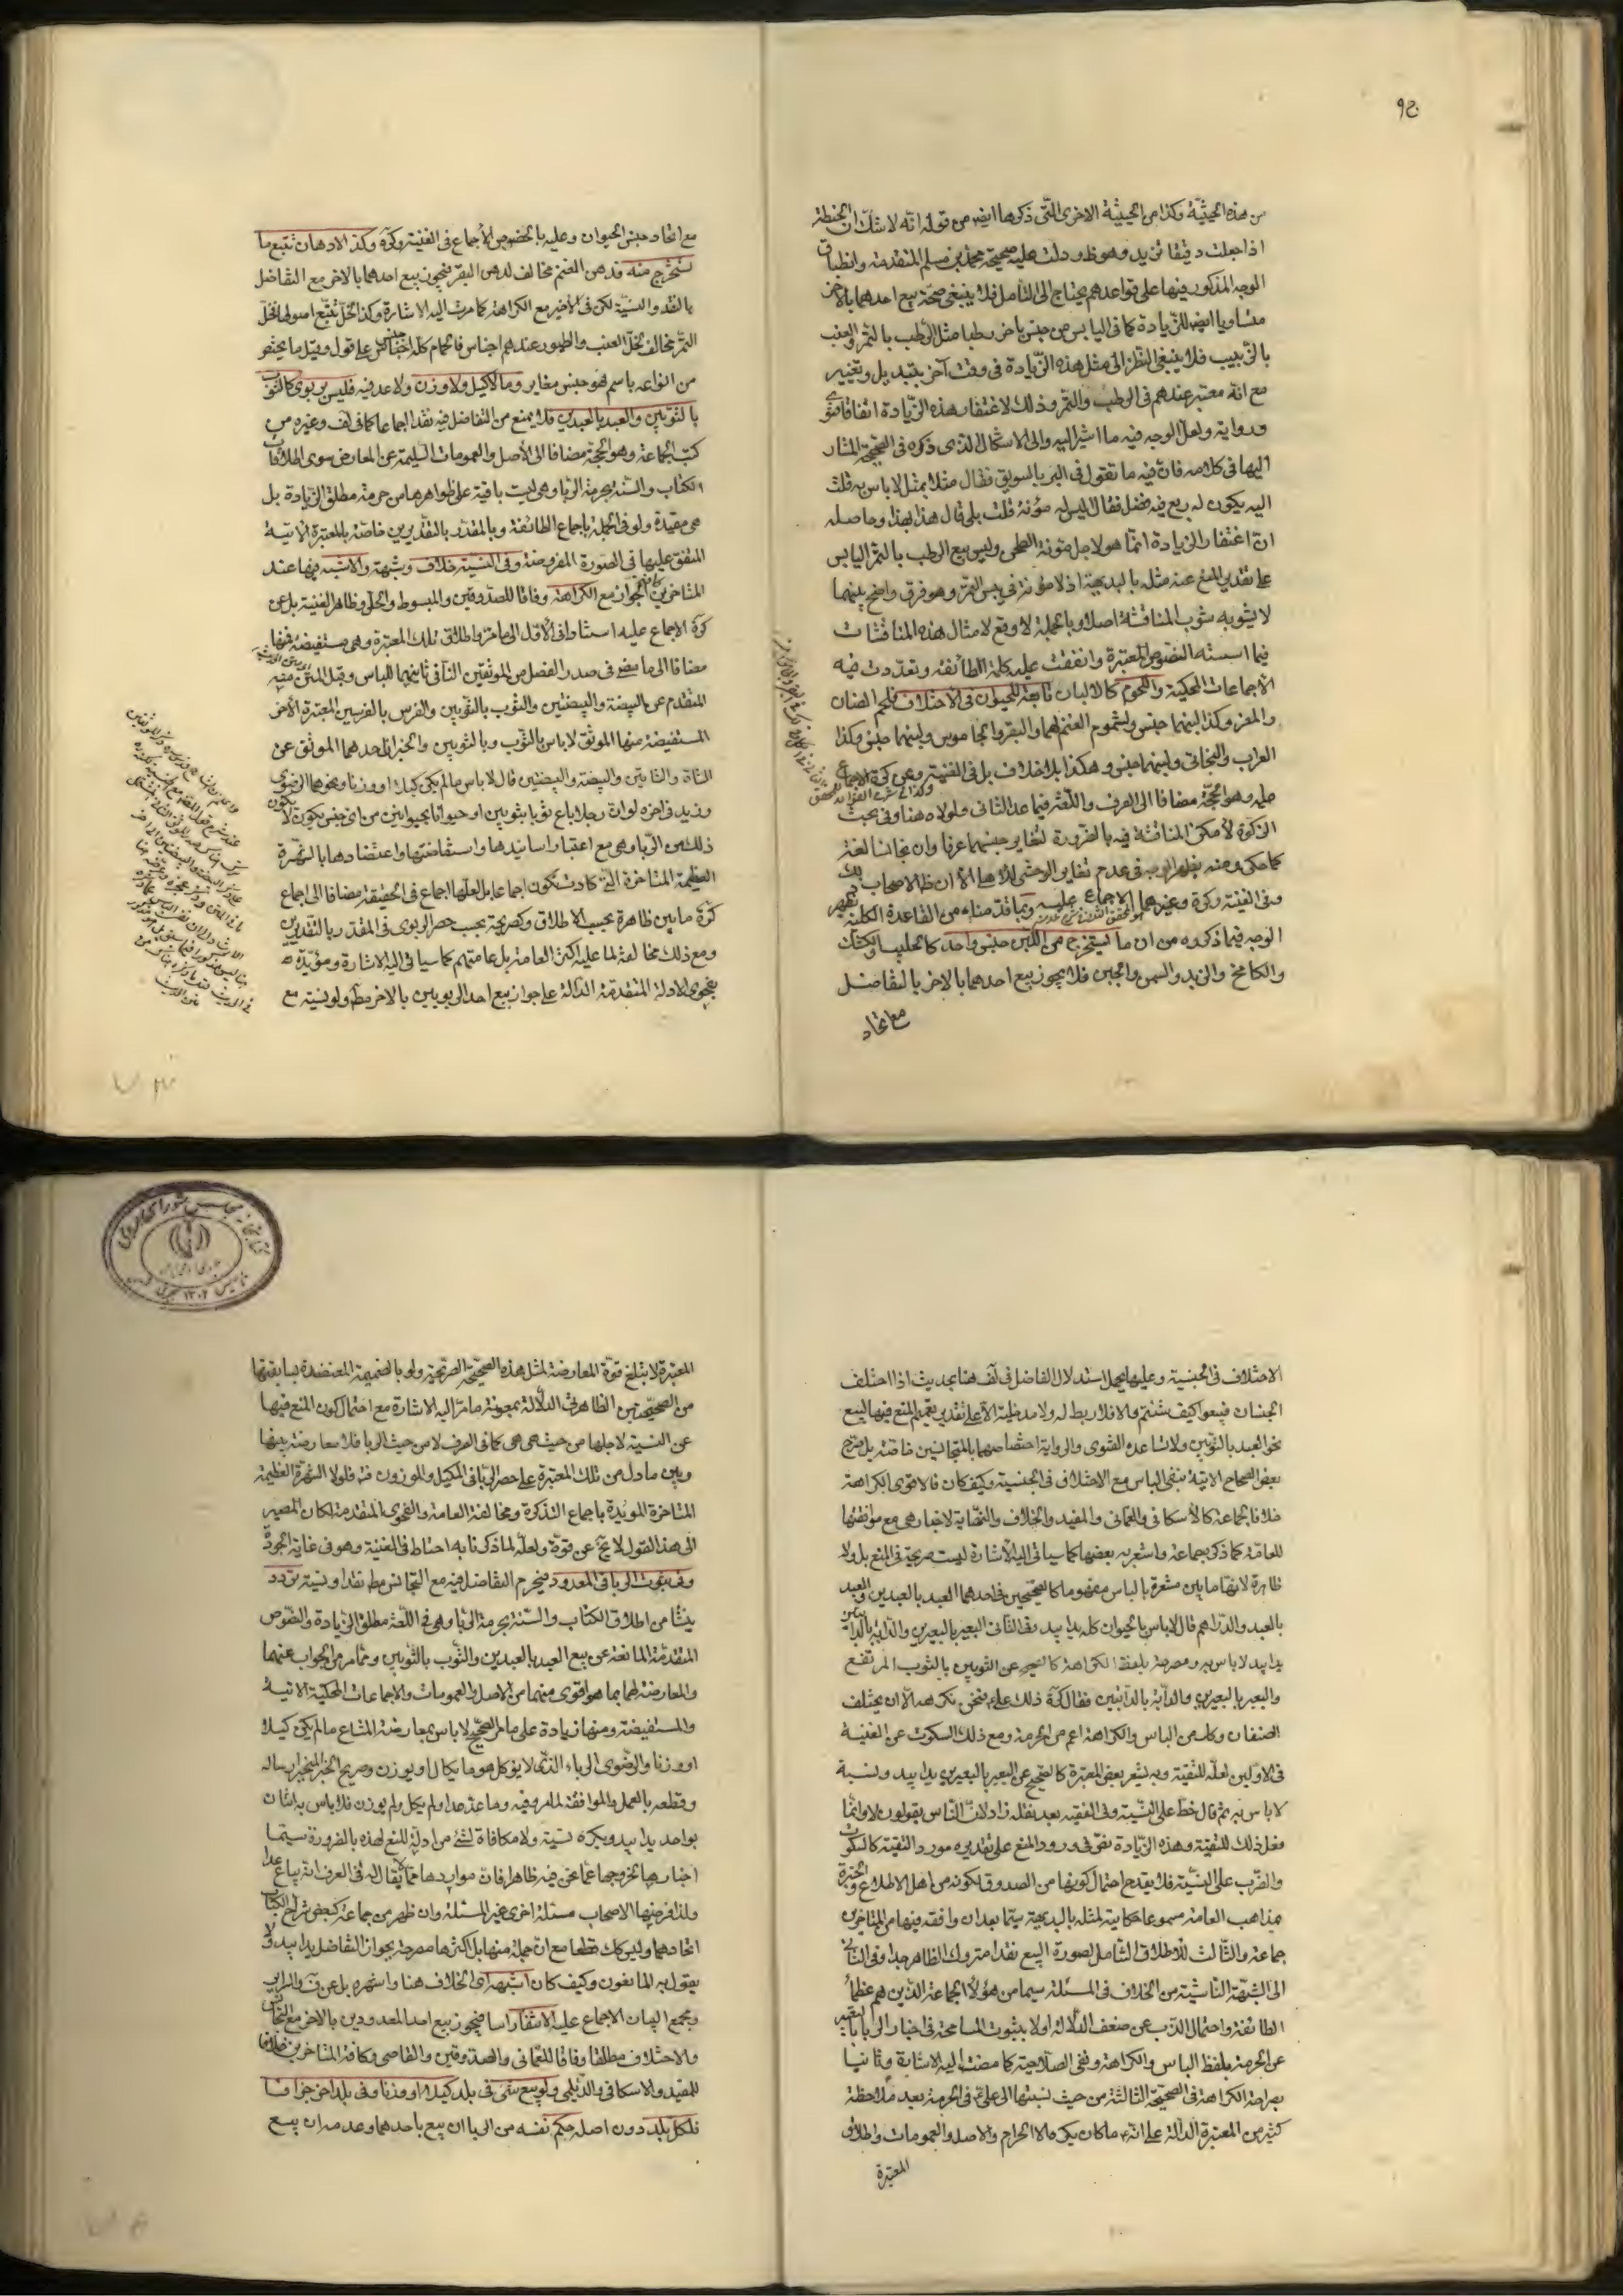 ٩٤
من هذه الحيثية وكذا من الحيثية الاخرى التي ذكرها ايضا من قوله انه لا شك ان الحنطة
اذا جعلت دقيقا تزيد وهو ظ ودلت عليه صحيحة محمد بن مسلم المتقدمة وانطباق
الوجه المذكور فيها على قواعدهم يحتاج الى التأمل فلا ينبغي صحة بيع احدهما بالاخر
متساويا ايضا للزيادة كما في اليابس من جنس باخر رطبا مثل الرطب بالتمر والعنب
بالزبيب فلا ينبغي النظر الى مثل هذه الزيادة في وقت آخر بتبديل وتغيير
مع انه معتبر عندهم في الرطب والتمر وذلك لاغتفار هذه الزيادة اتفاقا فتوى
ورواية ولعل الوجه فيه ما اشير اليه والى الاشكال الذي ذكره في الصحيحة المشار
اليها في كلامه فان فيه ما تقول في البر بالسويق فقال مثلا بمثل لا باس به قلت
اليه يكون له ريع فيه فضل فقال اليس له مؤنة قلت بلى قال هذا بهذا وحاصله
ان اغتفار الزيادة انما هو لاجل مئونة الطحن وليس بيع الرطب بالتمر اليابس
على تقدير المنع عنه مثله بالبديهة اذ لا مؤنة في يبس التمر وهو فرق واضح بينهما
لا يشوبه شوب المناقشة اصلا وبالجملة لا وقع لامثال هذه المناقشات
فيما اسسته النصوص المعتبرة واتفقت عليه كلمة الطائفة وتعددت فيه
الاجماعات المحكية واللحوم كالالبان تابعة للحيوان في الاختلاف فلحم الضان
والمعز وكذا لبنهما جنس ولشمول الغنم لهما والبقر والجاموس ولبنهما جنس وكذا
العراب والبخاتي ولبنهما جنس وهكذا بلا خلاف بل في الغنية وعن كرة الاجماع
عليه وهو الحجة مضافا الى العرف واللغة فيما عدا الثاني ولولاه هنا وفي بحث
الزكوة لامكن المناقشة فيه بالضرورة لتغاير جنسهما عرفا وان تجانسا لغة
كما حكي ومنه يظهر الوجه في عدم تغاير الوحشي للاهلي الا ان ظ الاصحاب ذلك
وفي الغنية وكرة وغيرهما الاجماع عليه وبما قدمناه من القاعدة الكلية يظهر
الوجه فيما ذكروه من ان ما يستخرج من اللبن جنس واحد كالحليب والكشك
والكامخ والزبد والسمن والجبن فلا يجوز بيع احدهما بالاخر بالتفاضل
مع اتحاد
مع اتحاد جنس الحيوان وعليه بالخصوص الاجماع في الغنية وكرة وكذا الادهان تتبع ما
تستخرج منه فدهن الغنم مخالف لدهن البقر فيجوز بيع احدهما بالاخر مع التفاضل
بالنقد والنسية لكن في الاخير مع الكراهة كما مرت اليه الاشارة وكذا الخل تتبع اصولها فخل
التمر مخالف لخل العنب والطيور عندهم اجناس فالحمام كله جنس على قول وقيل ما يختص
من انواعه باسم فهو جنس مغاير وما لا كيل ولا وزن ولا عد فيه فليس بربوي كالثوب
بالثوبين والعبد بالعبدين فلا يمنع من التفاضل فيه نقدا اجماعا كما في لف وغيره من
كتب الجماعة وهو الحجة مضافا الى الاصل والعمومات السليمة عن المعارض سوى اطلاقات
الكتاب والسنة بحرمة الربا وهي ليست باقية على ظواهرها من حرمة مطلق الزيادة بل
هي مقيدة ولو في الجملة باجماع الطائفة وبالمقدر بالتقديرين خاصة بالمعتبرة الاتية
المتفق عليها في الصورة المفروضة وفي النسية خلاف وشبهة والاشبه فيها عند
المتاخرين كافة الجواز مع الكراهة وفاقا للصدوقين والمبسوط والحلي وظاهر الغنية بل عن
كرة الاجماع عليه استنادا في الاول الى ما مر واطلاق تلك المعتبرة وهي مستفيضة
مضافا الى ما مضى في صدر الفصل من الموثقين النافي ثانيهما للباس وقبل المتن منه
المتقدم عن البيضة والبيضتين والثوب بالثوبين والفرس بالفرسين المعتبرة الاخر
المستفيضة منها الموثق لا باس بالثوب وبالثوبين والخبران احدهما الموثق عن
الشاة والشاتين والبيضة والبيضتين قال لا باس ما لم يكن كيلا او وزنا ونحوهما الرضوي
وزيد في اخره لو ان رجلا باع ثوبا بثوبين او حيوانا بحيوانين من اي جنس يكون لا يكون
ذلك من الربا وهي مع اعتبار اسانيدها واستفاضتها واعتضادها بالشهرة
العظيمة المتاخرة التي كادت تكون اجماعا بل لعلها اجماع في الحقيقة مضافا الى اجماع
كرة ما بين ظاهرة بحسب الاطلاق وكصريحة بحسب حصر الربوي في المقدر بالتقديرين
ومع ذلك مخالفة لما عليه اكثر العامة بل عامتهم كما سياتي اليه الاشارة ومؤيدة
بفحوى الادلة المتقدمة الدالة على جواز بيع احد الربويين بالاخر مط ولو نسية مع
الاختلاف في الجنسية وعليها يحمل استدلال الفاضل في لف هنا بحديث اذا اختلف
الجنسان فبيعوا كيف شئتم والا فلا ربط له ولا مدخلية الا على تقدير تعميم المنع فيها لبيع
نحو العبد بالثوبين ولا تساعده الفتوى والرواية احتصاصهما بالمتجانسين خاصة بل صرح
بعض الصحاح الاتية بنفي الباس مع الاختلاف في الجنسية وكيف كان فالاقوى الكراهة
خلافا لجماعة كالاسكافي والعماني والمفيد والخلاف والنهاية لاخبار هي مع موافقتها
للعامة كما ذكره جماعة واشعر به بعضها كما سياتي اليه الاشارة ليست صريحة في المنع بل ولا
ظاهرة لانها ما بين مشعرة بالباس مفهوما كالصحيحين في احدهما العبد بالعبدين والعبد
بالعبد والدراهم قال لا باس بالحيوان كله يدا بيد وفي الثاني البعير بالبعيرين والدابة بالدابتين
يدا بيد لا باس به ومصرحة بلفظ الكراهة كالصحيح عن الثوبين بالثوب المرتفع
والبعير بالبعيرين والدابة بالدابتين فقال كره ذلك علي فنحن نكرهه الا ان يختلف
الصنفان وكل من الباس والكراهة اعم من الحرمة ومع ذلك السكوت عن النسية
في الاولين لعله للتقية وبه يشعر بعض المعتبرة كالصحيح عن البعير بالبعيرين يدا بيد ونسية
لا باس به ثم قال خط على النسية وفي الفقيه بعد نقله زاد لان الناس يقولون لا وانما
فعل ذلك للتقية وهذه الزيادة نص في ورود المنع على تقديره مورد التقية كالسكوت
والضرب على النسية فلا يقدح احتمال كونها من الصدوق لكونه من اهل الاطلاع والخبرة
بمذاهب العامة مسموعا حكايته لمثله بالبديهية سيما بعد ان وافقه فيها من المتاخرين
جماعة والثالث للاطلاق الشامل لصورة البيع نقدا متروك الظاهر جدا وفي الثاني
الى الشبهة الناشئة من الخلاف في المسئلة سيما من هؤلاء الجماعة الذين هم عظماء
الطائفة واحتمال الذب عن ضعف الدلالة اولا بثبوت المسامحة في اخبار الربا بالتعبير
عن الحرمة بلفظ الباس والكراهة ونفي الصلاحية كما مضت اليه الاشارة وثانيا
بصراحة الكراهة في الصحيحة الثالثة من حيث نسبتها الى علي في الحرمة بعد ملاحظة
كثير من المعتبرة الدالة على انه ما كان يكره الا الحرام والاصل والعمومات واطلاق
المعتبرة
المعتبرة لا يتلغ قوة المعارضة لمثل هذه الصحيحة الصريحة ولو بالضميمة المعتضدة بسابقتها
من الصحيحتين الظاهرتي الدلالة بمعونة ما مر اليه الاشارة مع احتمال كون المنع فيها
عن النسية لاجلها من حيث هي هي كما في الصرف لا من حيث الربا فلا معارضة بينها
وبين ما دل من تلك المعتبرة على حصر الربا في المكيل والموزون فت فلولا الشهرة العظيمة
المتاخرة المويدة باجماع التذكرة ومخالفة العامة والفحوى المتقدمة لكان المصير
الى هذا القول لا يخ عن قوة ولعله لما ذكرنا به احتاط في الغنية وهو في غاية الجودة
وفي ثبوت الربا في المعدود فيحرم التفاضل فيه مع التجانس مط نقدا ونسية تردد
ينشا من اطلاق الكتاب والسنة بحرمة الربا وهي في اللغة مطلق الزيادة والنصوص
المتقدمة المانعة عن بيع العبد بالعبدين والثوب بالثوبين ومما مر من الجواب عنهما
والمعارضة لهما بما هو اقوى منهما من الاصل والعمومات والاجماعات المحكية الاتية
والمستفيضة ومنها زيادة على ما مر الصحيح لا باس بمعارضة المتاع ما لم يكن كيلا
او وزنا والرضوي الرباء الذي لا يؤكل هو ما يكال او يوزن وصريح الخبر المنجبر ارساله
وقطعه بالعمل والموافقة لما رويه وما عد عددا ولم يكل ولم يوزن فلا باس به اثنان
بواحد يدا بيد ويكره نسية ولا مكافاة لشئ من ادلة المنع لهذه بالضرورة سيما
اخبارها لخروجها عما نحن فيه ظاهرا فان مواردها مما لا يقال له في العرف انه يباع عدا
ولذا فرضها الاصحاب مسئلة اخرى غير المسئلة وان ظهر من جماعة كبعض شراح الكتاب
اتحادهما وليس كك قطعا مع ان جملة منها بل اكثرها مصرحة بجواز التفاضل يدا بيد ولا
يقول به المانعون وكيف كان اشبهه اي الخلاف هنا واشهره بل عن ف والسرائر
ومجمع البيان الاجماع عليه الانتفاء اساسا فيجوز بيع احد المعدودين بالاخر مع التجانس
والاختلاف مطلقا وفاقا للعماني والصدوقين والقاضي وكافة المتاخرين خلافا
للمفيد والاسكافي والديلمي ولو بيع شئ في بلد كيلا او وزنا وفي بلد اخر جزافا
فلكل بلد دون اصله حكم نفسه من الربا ان بيع باحدهما وعدمه ان بيع